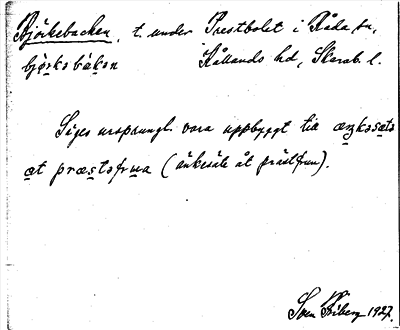 Björkebacken, t. under Prestbolet i Råda sn,
björkobakon Kållands hd, Skarab. l.
Säges ursprungl. vara uppbyggt till ænkosæto
at præstofrua (änkesäte åt prästfrun).
Sven Friberg 1927.